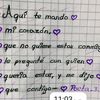 Aquí te mando
mi corazón,
que no quiere estar conmigo
le pregunte con quien
quería estar, y me dijo
que contigo
11:03